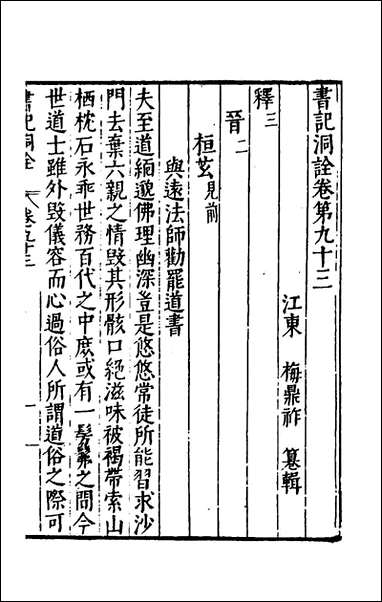 書記洞詮卷第九十三
江東　梅鼎祚　纂輯
釋三
晉二
桓玄見前
與遠法師勸罷道書
夫至道緬邈佛理幽深豈是悠悠常徒所能習求沙
門去棄六親之情毀其形骸口絕滋味被褐帶索山
栖枕石永乖世務百代之中庶或有一髣髴之間今
世道士雖外毀儀容而心過俗人所謂道俗之際可
書記洞詮　卷九十三　一